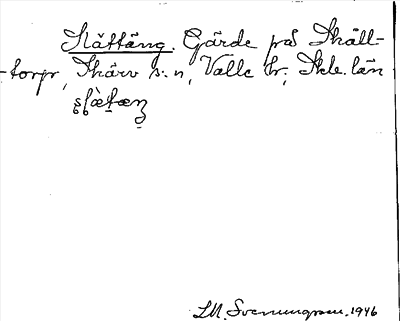 Slättäng. Gärde på Skåll-
-torp, Skärv s:n, Valle hr, Skb. län
L.M. Svenungsson. 1946